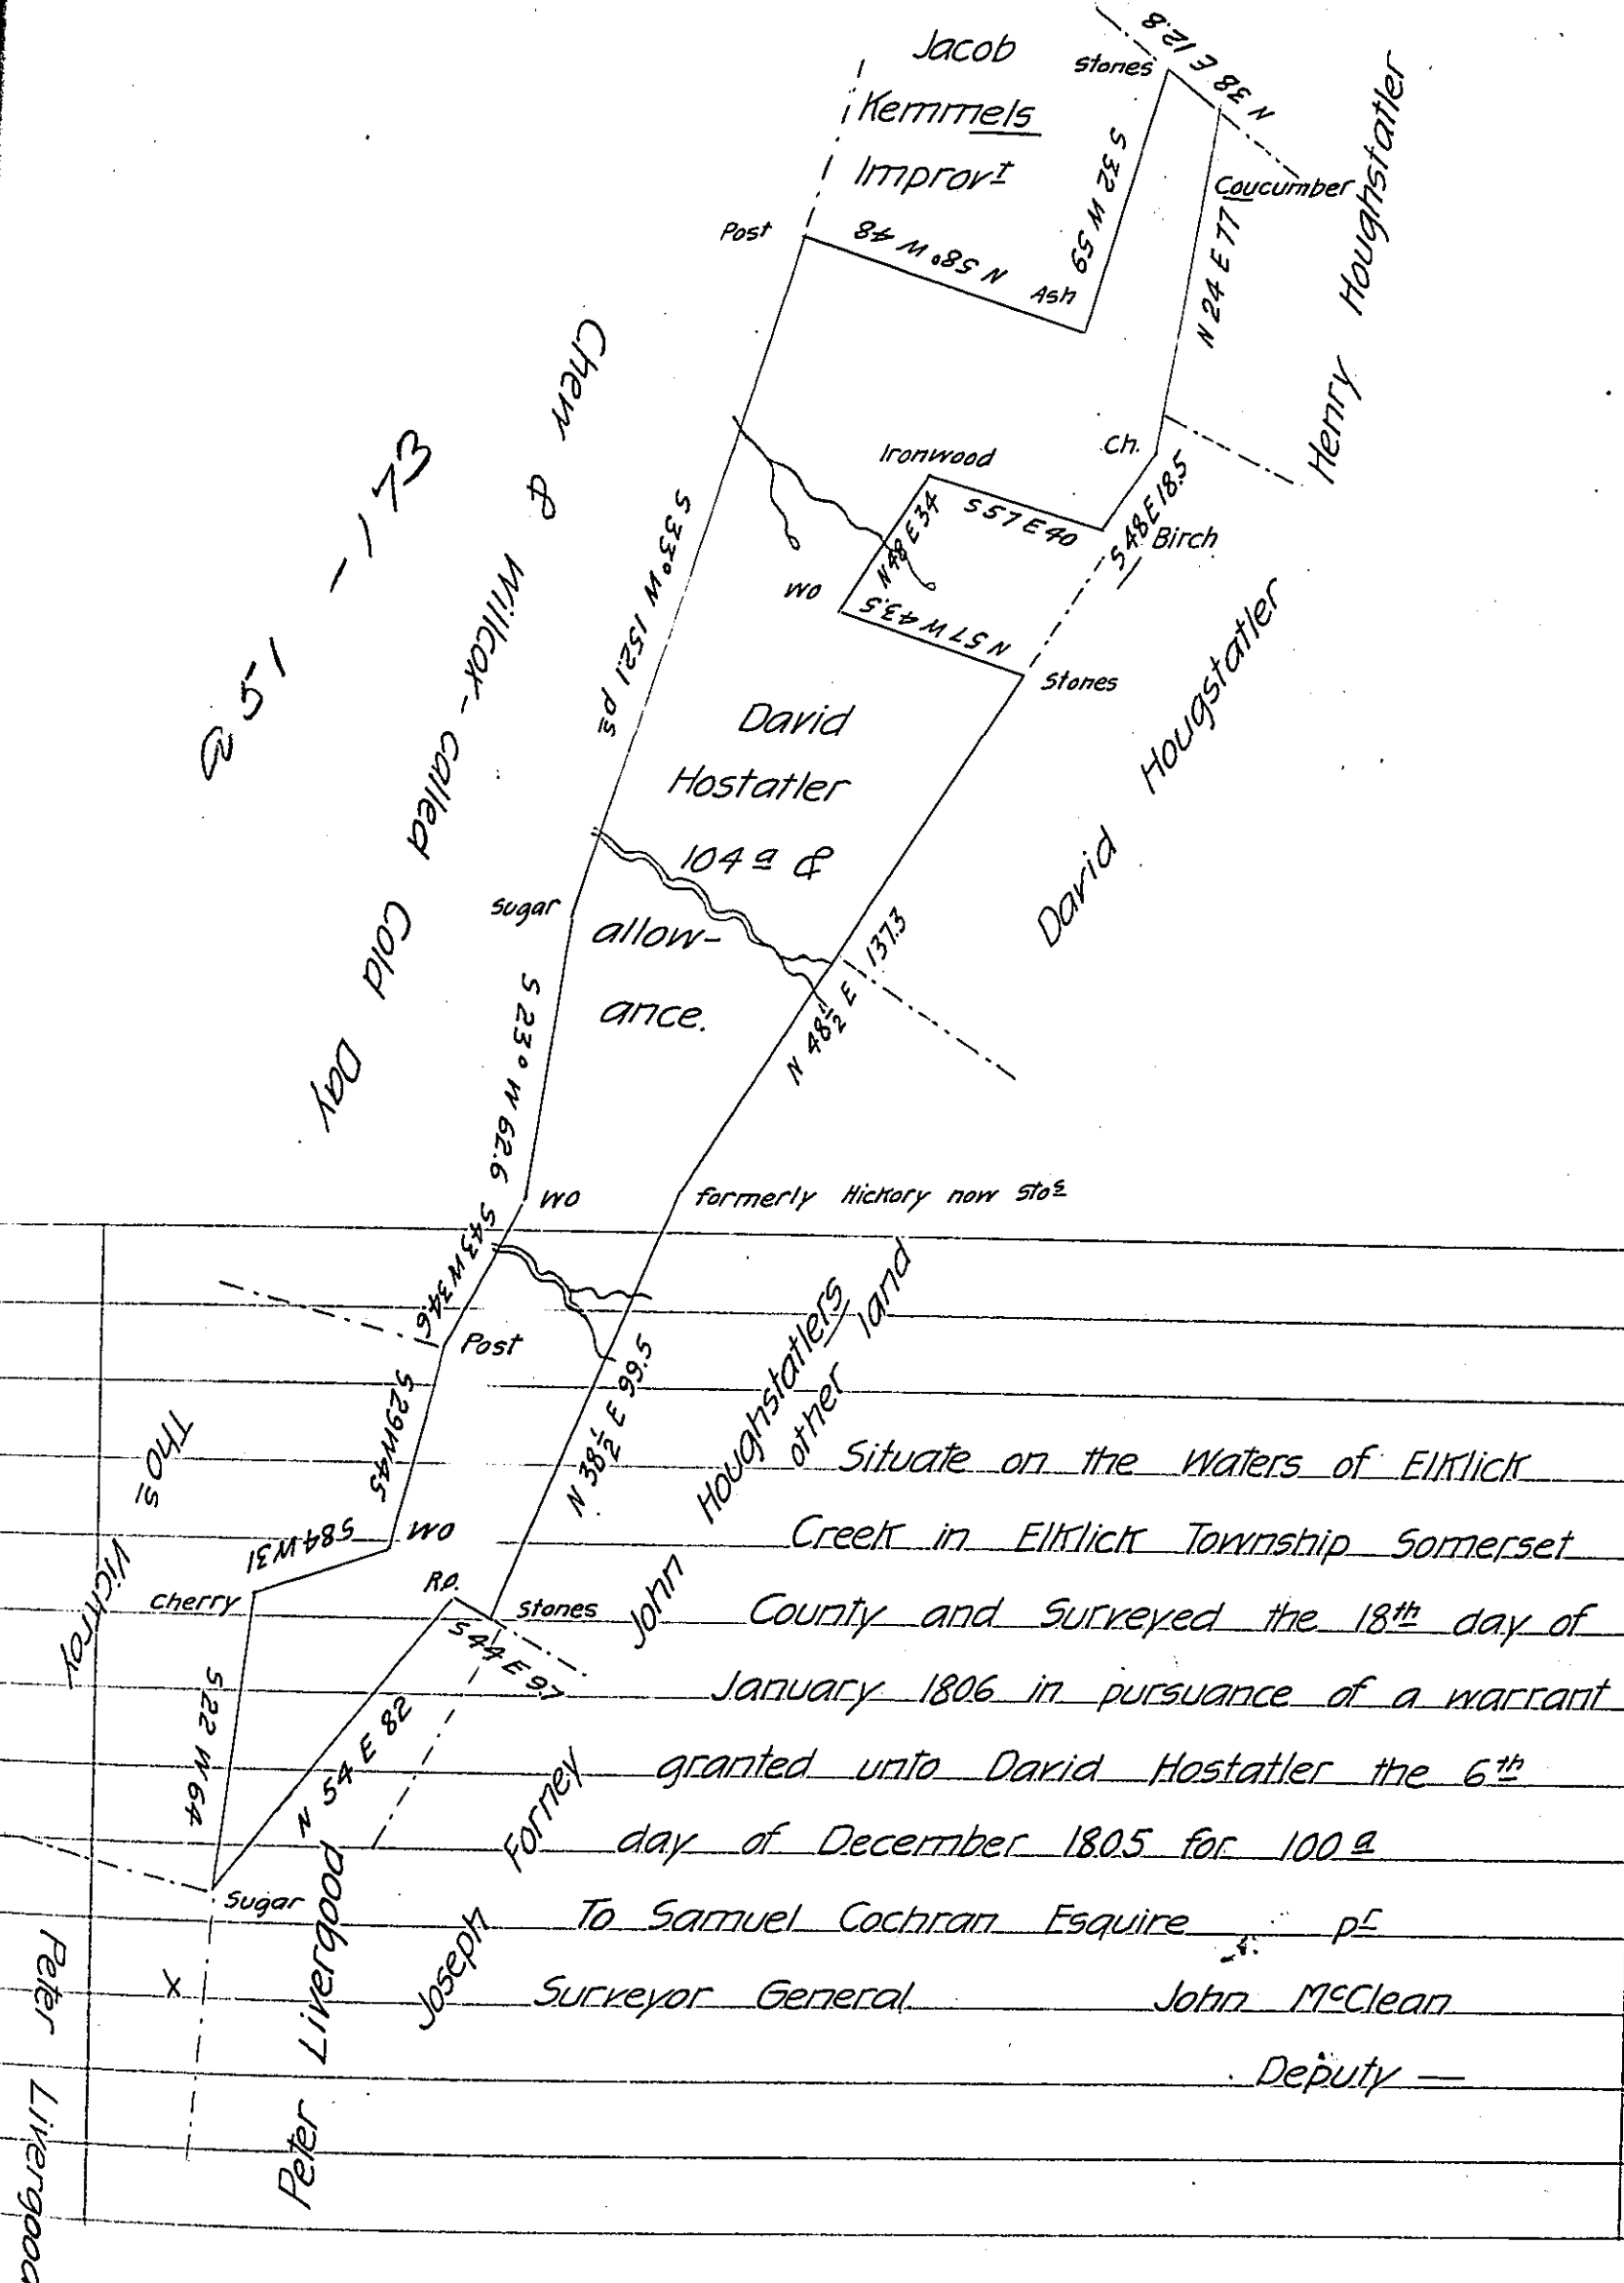 Jacob
Kemmels
Improvt
Stones
N 38 E 12.8
S 32 W 59
Coucumber
N 24 E 77
Henry Houghstatler
Post
N 58° W 48
Ash
Chew & Willcox - called Cold Day
- 173
Ironwood
Ch.
S 57 E 40
S 48 E 18.5
Birch
N 48 E 34
WO
N 57 W 43.5
Stones
S 33° W 152.1 ps
David
Hostatler
104 a &
allow-
ance.
David Hougstatler
Sugar
S 23° W 62.6
N 48 1/2 E 137.3
WO
formerly Hickory now Stos
S 43 W 34.6
Post
John Houghstatlers
other land
S 29 W 45
N 38 1/2 E 99.5
Thos Vickroy
S 84 W 31
WO
Cherry
R.O.
Stones
S 44 E 9.7
S 22 W 64
N 54 E 82
Joseph Forney
Sugar
Peter Livergood
Peter Livergood
X
Situate on the Waters of Elklick
Creek in Elklick Township Somerset
County and Surveyed the 18th day of
January 1806 in pursuance of a warrant
granted unto David Hostatler the 6th
day of December 1805 for 100 a
To Samuel Cochran Esquire pr
Surveyor General John McClean
Deputy —